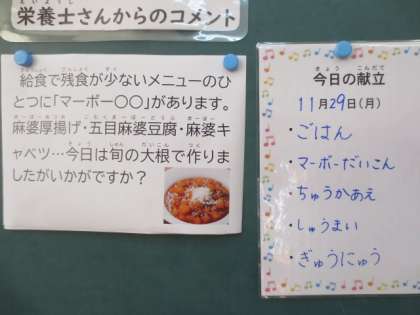 栄養士さんからのコメント
給食で残食が少ないメニューのひ
とつに「マーボー〇〇」があります。
麻婆厚揚げ・五目麻婆豆腐・麻婆キ
ャベツ…今日は旬の大根で作りま
したがいかがですか？
今日の献立
11月29日（月）
・ごはん
・マーボーだいこん
・ちゅうかあえ
・しゅうまい
・ぎゅうにゅう